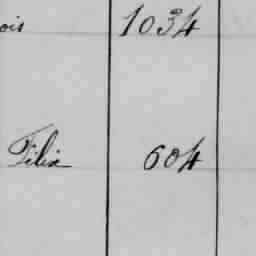 ois 1034
Felix 604